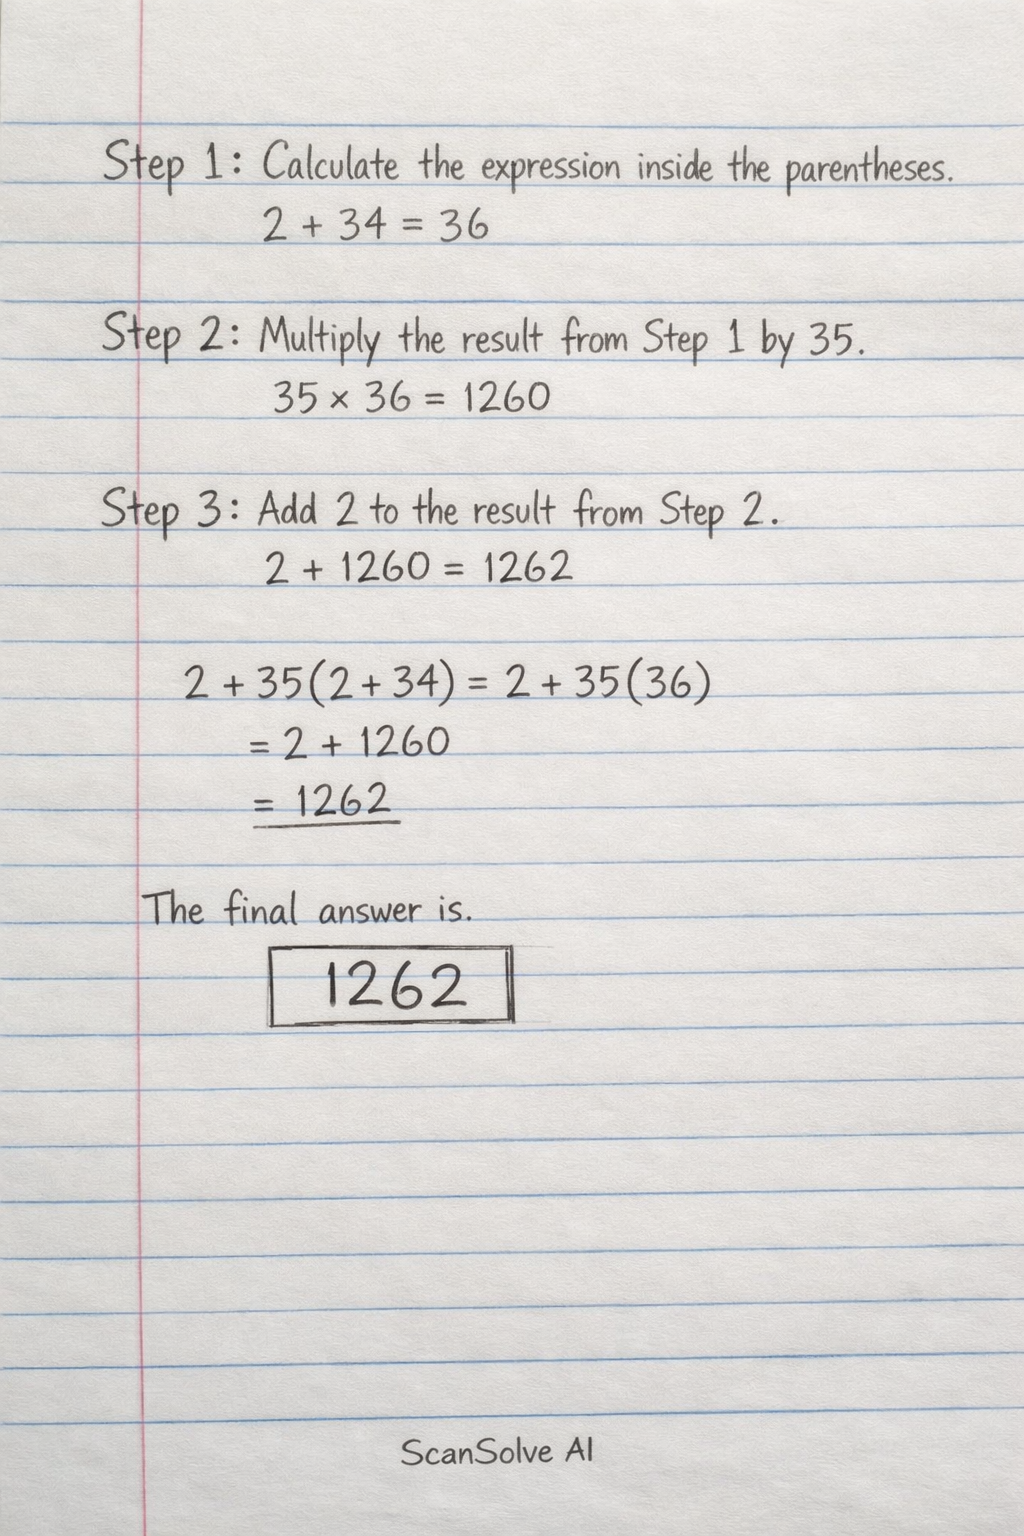 Step 1: Calculate the expression inside the parentheses.
2 + 34 = 36
Step 2: Multiply the result from Step 1 by 35.
35 × 36 = 1260
Step 3: Add 2 to the result from Step 2.
2 + 1260 = 1262
2 + 35(2 + 34) = 2 + 35(36)
= 2 + 1260
= 1262
The final answer is.
1262
ScanSolve AI